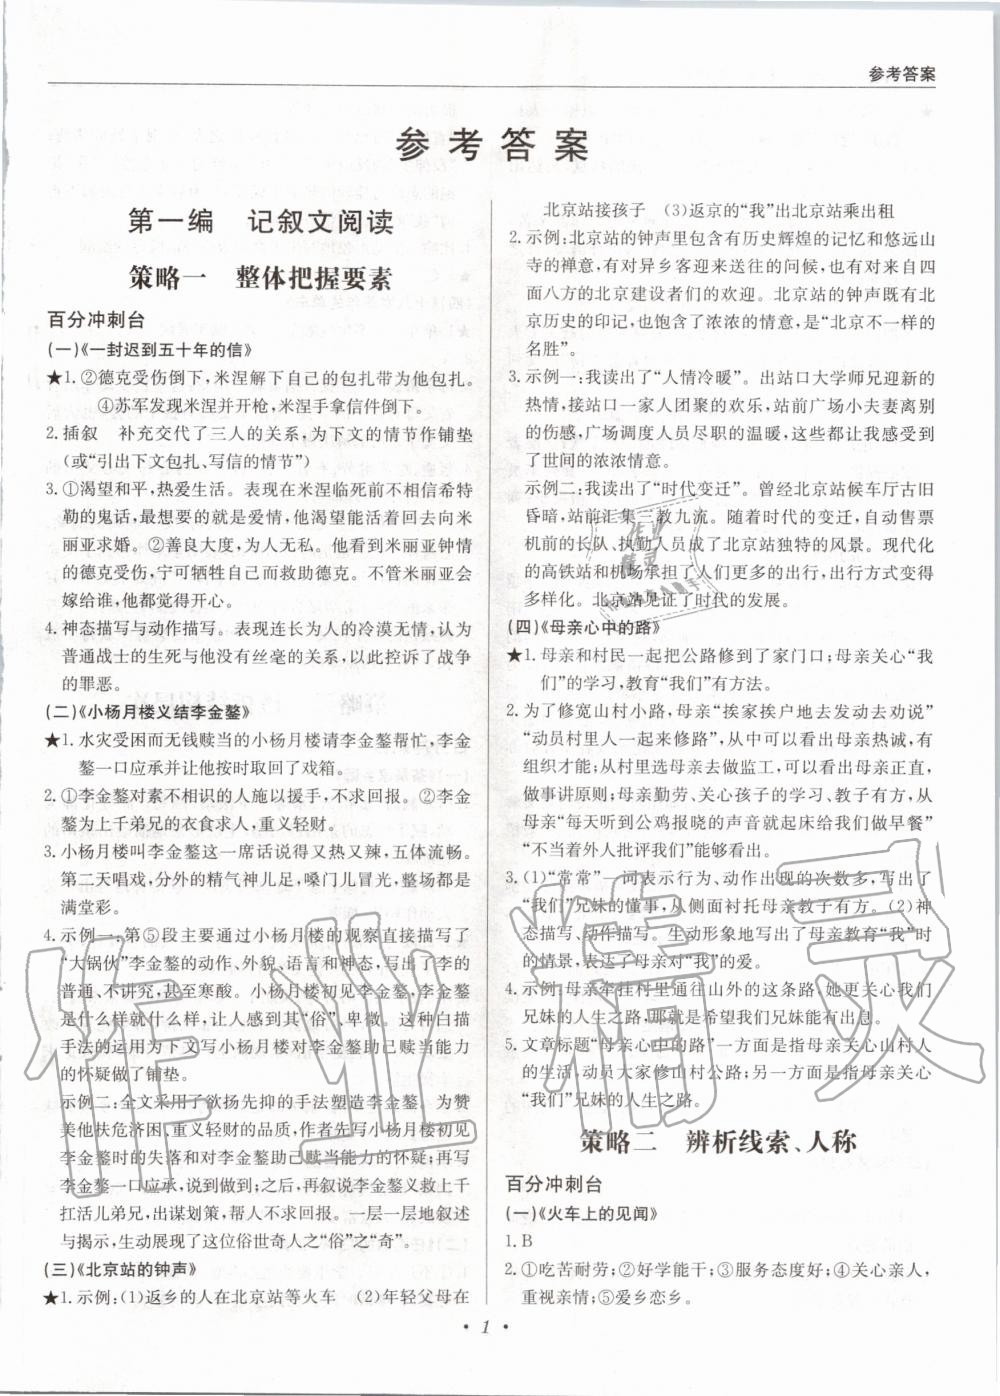 参考答案
参考答案
第一编　记叙文阅读
策略一　整体把握要素
百分冲刺台
(一)《一封迟到五十年的信》
★1. ②德克受伤倒下，米涅解下自己的包扎带为他包扎。
④苏军发现米涅并开枪，米涅手拿信件倒下。
2. 插叙　补充交代了三人的关系，为下文的情节作铺垫
(或“引出下文包扎、写信的情节”)
3. ①渴望和平，热爱生活。表现在米涅临死前不相信希特
勒的鬼话，最想要的就是爱情，他渴望能活着回去向米
丽亚求婚。②善良大度，为人无私。他看到米丽亚钟情
的德克受伤，宁可牺牲自己而救助德克。不管米丽亚会
嫁给谁，他都觉得开心。
4. 神态描写与动作描写。表现连长为人的冷漠无情，认为
普通战士的生死与他没有丝毫的关系，以此控诉了战争
的罪恶。
(二)《小杨月楼义结李金鏊》
★1. 水灾受困而无钱赎当的小杨月楼请李金鏊帮忙，李金
鏊一口应承并让他按时取回了戏箱。
2. ①李金鏊对素不相识的人施以援手，不求回报。②李金
鏊为上千弟兄的衣食求人，重义轻财。
3. 小杨月楼叫李金鏊这一席话说得又热又辣，五体流畅。
第二天唱戏，分外的精气神儿足，嗓门儿冒光，整场都是
满堂彩。
4. 示例一：第⑤段主要通过小杨月楼的观察直接描写了
“大锅伙”李金鏊的动作、外貌、语言和神态，写了李的
普通、不讲究，甚至寒酸。小杨月楼初见李金鏊，李金鏊
是什么样就什么样，让人感到其“俗”、卑微。这种白描
手法的运用为下文写小杨月楼对李金鏊助己赎当能力
的怀疑做了铺垫。
示例二：全文采用了欲扬先抑的手法塑造李金鏊。为赞
美他扶危济困、重义轻财的品质，作者先写小杨月楼初见
李金鏊时的失落和对李金鏊帮己赎当能力的怀疑；再写
李金鏊一口应承，说到做到；之后，再叙说李金鏊义救上千
扛活儿弟兄，出谋划策，帮人不求回报。一层一层地叙述
与揭示，生动展现了这位俗世奇人之“俗”之“奇”。
(三)《北京站的钟声》
★1. 示例：(1)返乡的人在北京站等火车　(2)年轻父母在
北京站接孩子　(3)返京的“我”出北京站乘出租
2. 示例：北京站的钟声里包含有历史辉煌的记忆和悠远山
寺的禅意，有对异乡客迎来送往的问候，也有对来自四
面八方的北京建设者们的欢迎。北京站的钟声既有北
京历史的印记，也饱含了浓浓的情意，是“北京不一样的
名胜”。
3. 示例一：我读出了“人情冷暖”。出站口大学师兄迎新的
热情，接站口一家人团聚的欢乐，站前广场小夫妻离别
的伤感，广场调度人员尽职的温暖，这些都让我感受到
了世间的浓浓情意。
示例二：我读出了“时代变迁”。曾经北京站候车厅古旧
昏暗，站前汇集三教九流。随着时代的变迁，自动售票
机前的长队、执勤人员成了北京站独特的风景。现代化
的高铁站和机场承担了人们更多的出行，出行方式变得
多样化。北京站见证了时代的发展。
(四)《母亲心中的路》
★1. 母亲和村民一起把公路修到了家门口；母亲关心“我
们”的学习，教育“我们”有方法。
2. 为了修宽山村小路，母亲“挨家挨户地去发动去劝说”
“动员村里人一起来修路”，从中可以看出母亲热诚，有
组织才能；从村里选母亲去做监工，可以看出母亲正直，
做事讲原则；母亲勤劳、关心孩子的学习、教子有方，从
母亲“每天听到公鸡报晓的声音就起床给我们做早餐”
“不当着外人批评我们”能够看出。
3. (1)“常常”一词表示行为、动作出现的次数多，写出了
“我们”兄妹的懂事，从侧面衬托母亲教子有方。(2)神
态描写、动作描写。生动形象地写出了母亲教育“我”时
的情景，表达了母亲对“我”的爱。
4. 示例：母亲牵挂村里通往山外的这条路，她更关心我们
兄妹的人生之路，那就是希望我们兄妹能有出息。
5. 文章标题“母亲心中的路”一方面是指母亲关心山村人
的生活，动员大家修山村公路；另一方面是指母亲关心
“我们”兄妹的人生之路。
策略二　辨析线索、人称
百分冲刺台
(一)《火车上的见闻》
1. B
2. ①吃苦耐劳；②好学能干；③服务态度好；④关心亲人，
重视亲情；⑤爱乡恋乡。
• 1 •
作业精灵